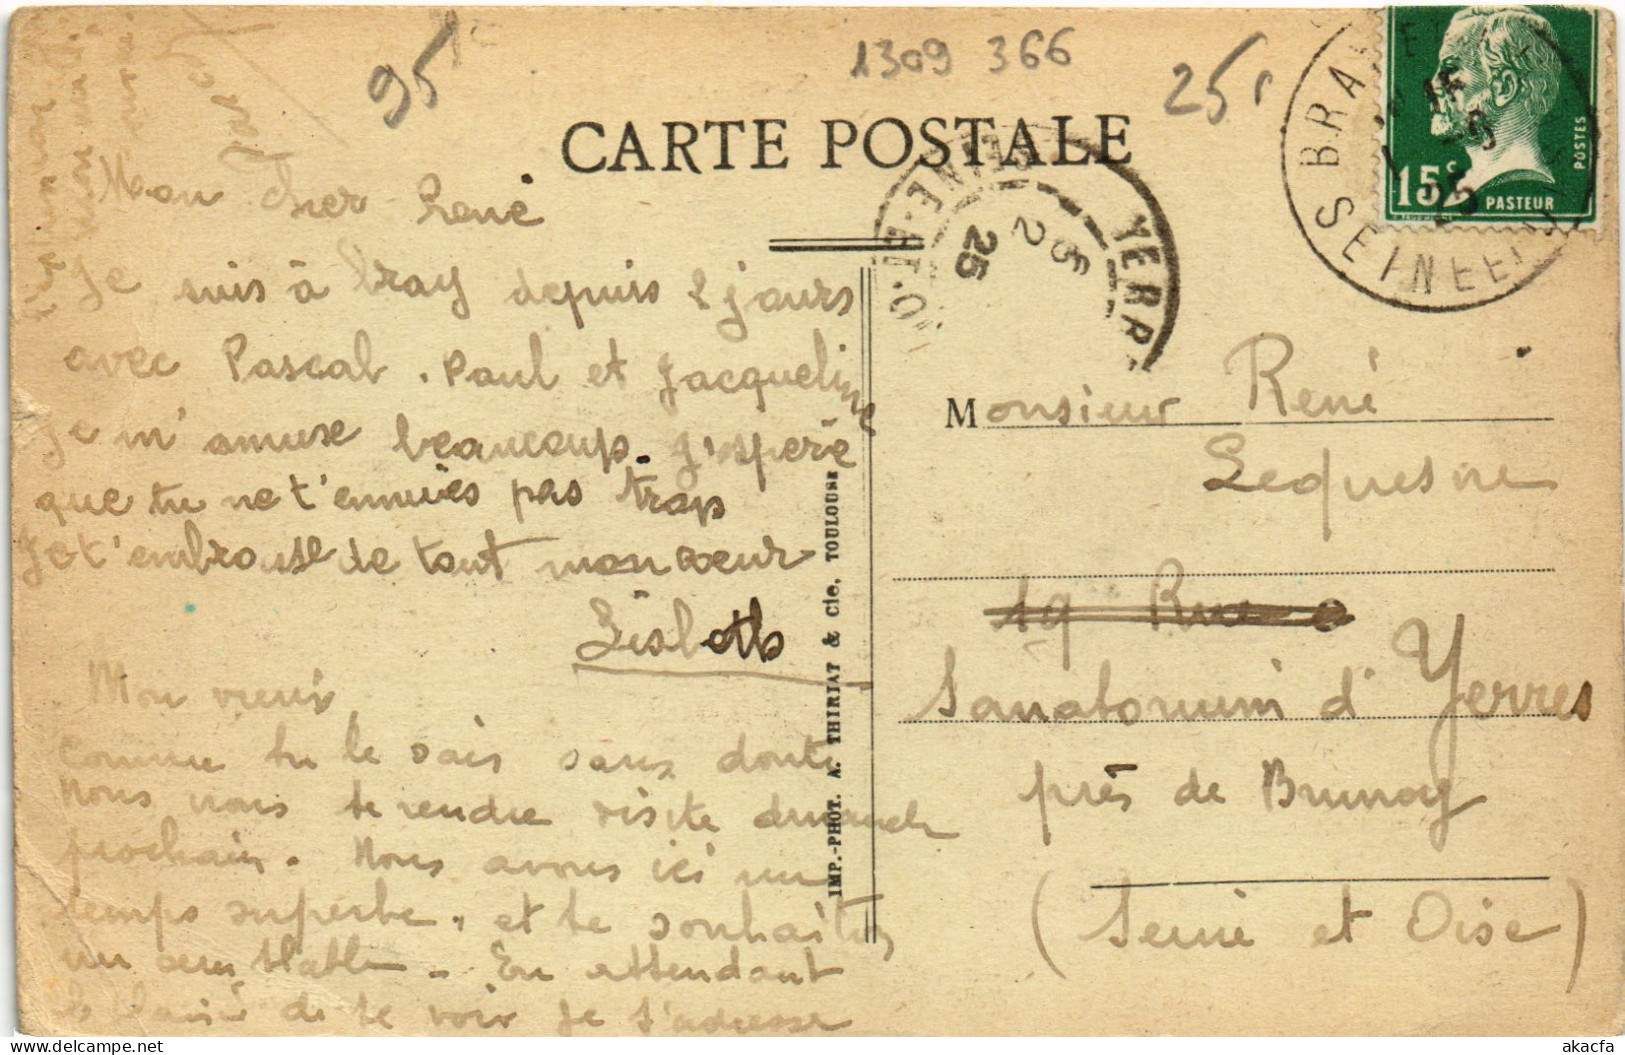 1309 366
95
25
CARTE POSTALE
BRAY
SEINE ET
15
25
15c
PASTEUR
POSTES
YERRES
SEINE-ET-O.
2
25
Mon Cher René
Je suis à Bray depuis 2 jours
avec Pascal. Paul et Jacqueline
je m'amuse beaucoup. J'espère
que tu ne t'ennuies pas trop
Je t'embrasse de tout mon cœur
Lisbeth
Mon vieux
comme tu le sais sans doute
Nous irons te rendre visite dimanche
prochain. Nous avons ici un
temps superbe. et te souhaitons
un semblable. En attendant
le plaisir de te voir je t'adresse
IMP.-PHOT. A. THIRIAT & Cie, TOULOUSE
Monsieur René
Lequesne
19 Rue
Sanatorium d'Yerres
près de Brunoy
(Seine et Oise)
akacfa